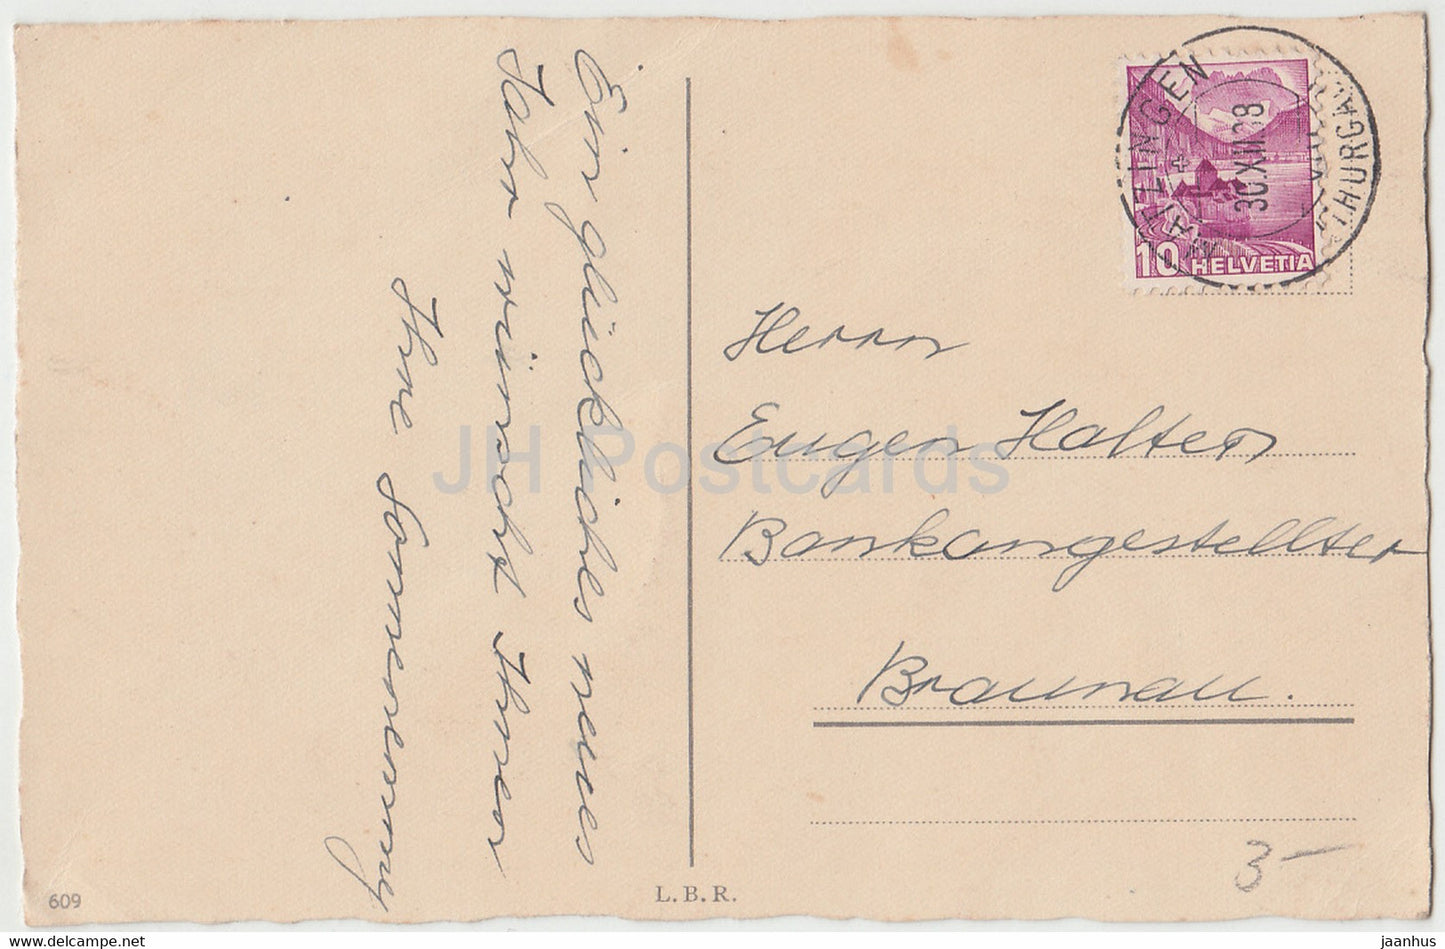 Ein glückliches neues
Jahr wünscht Ihnen
Ihre
MATZINGEN
30.XII.38
THURGAU
10 HELVETIA
Herrn
Eugen Halter
Bankangestellter
Braunau.
3 –
609
L.B.R.
JH Postcards
jaanhus
www.jaanhus.com